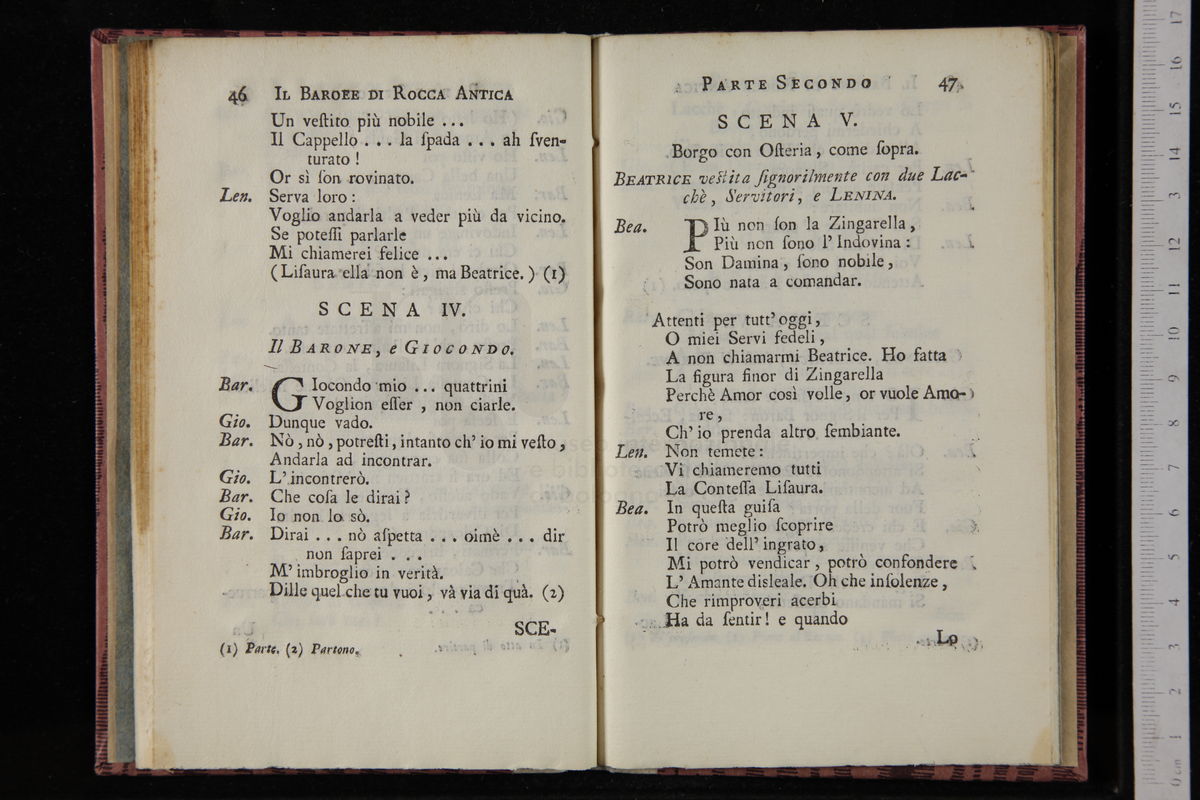 46 IL BAROEE DI ROCCA ANTICA
Un veſtito più nobile ...
Il Cappello ... la ſpada ... ah ſven-
turato !
Or sì ſon rovinato.
Len. Serva loro :
Voglio andarla a veder più da vicino.
Se poteſſi parlarle
Mi chiamerei felice ...
( Liſaura ella non è , ma Beatrice. ) (1)
SCENA IV.
Il BARONE, e GIOCONDO.
Bar. GIocondo mio ... quattrini
Voglion eſſer , non ciarle.
Gio. Dunque vado.
Bar. Nò , nò , potreſti , intanto ch' io mi veſto ,
Andarla ad incontrar.
Gio. L' incontrerò.
Bar. Che coſa le dirai ?
Gio. Io non lo sò.
Bar. Dirai ... nò aſpetta ... oimè ... dir
non ſaprei ...
M' imbroglio in verità.
Dille quel che tu vuoi , và via di quà. (2)
SCE-
(1) Parte. (2) Partono.
PARTE SECONDO 47
SCENA V.
Borgo con Oſteria , come ſopra.
BEATRICE veſtita ſignorilmente con due Lac-
chè , Servitori , e LENINA.
Bea. PIù non ſon la Zingarella ,
Più non ſono l' Indovina :
Son Damina , ſono nobile ,
Sono nata a comandar.
Attenti per tutt' oggi ,
O miei Servi fedeli ,
A non chiamarmi Beatrice. Ho fatta
La figura finor di Zingarella
Perchè Amor così volle , or vuole Amo-
re ,
Ch' io prenda altro ſembiante.
Len. Non temete :
Vi chiameremo tutti
La Conteſſa Liſaura.
Bea. In queſta guiſa
Potrò meglio ſcoprire
Il core dell' ingrato ,
Mi potrò vendicar , potrò confondere
L' Amante disleale. Oh che inſolenze ,
Che rimproveri acerbi
Ha da ſentir ! e quando
Lo